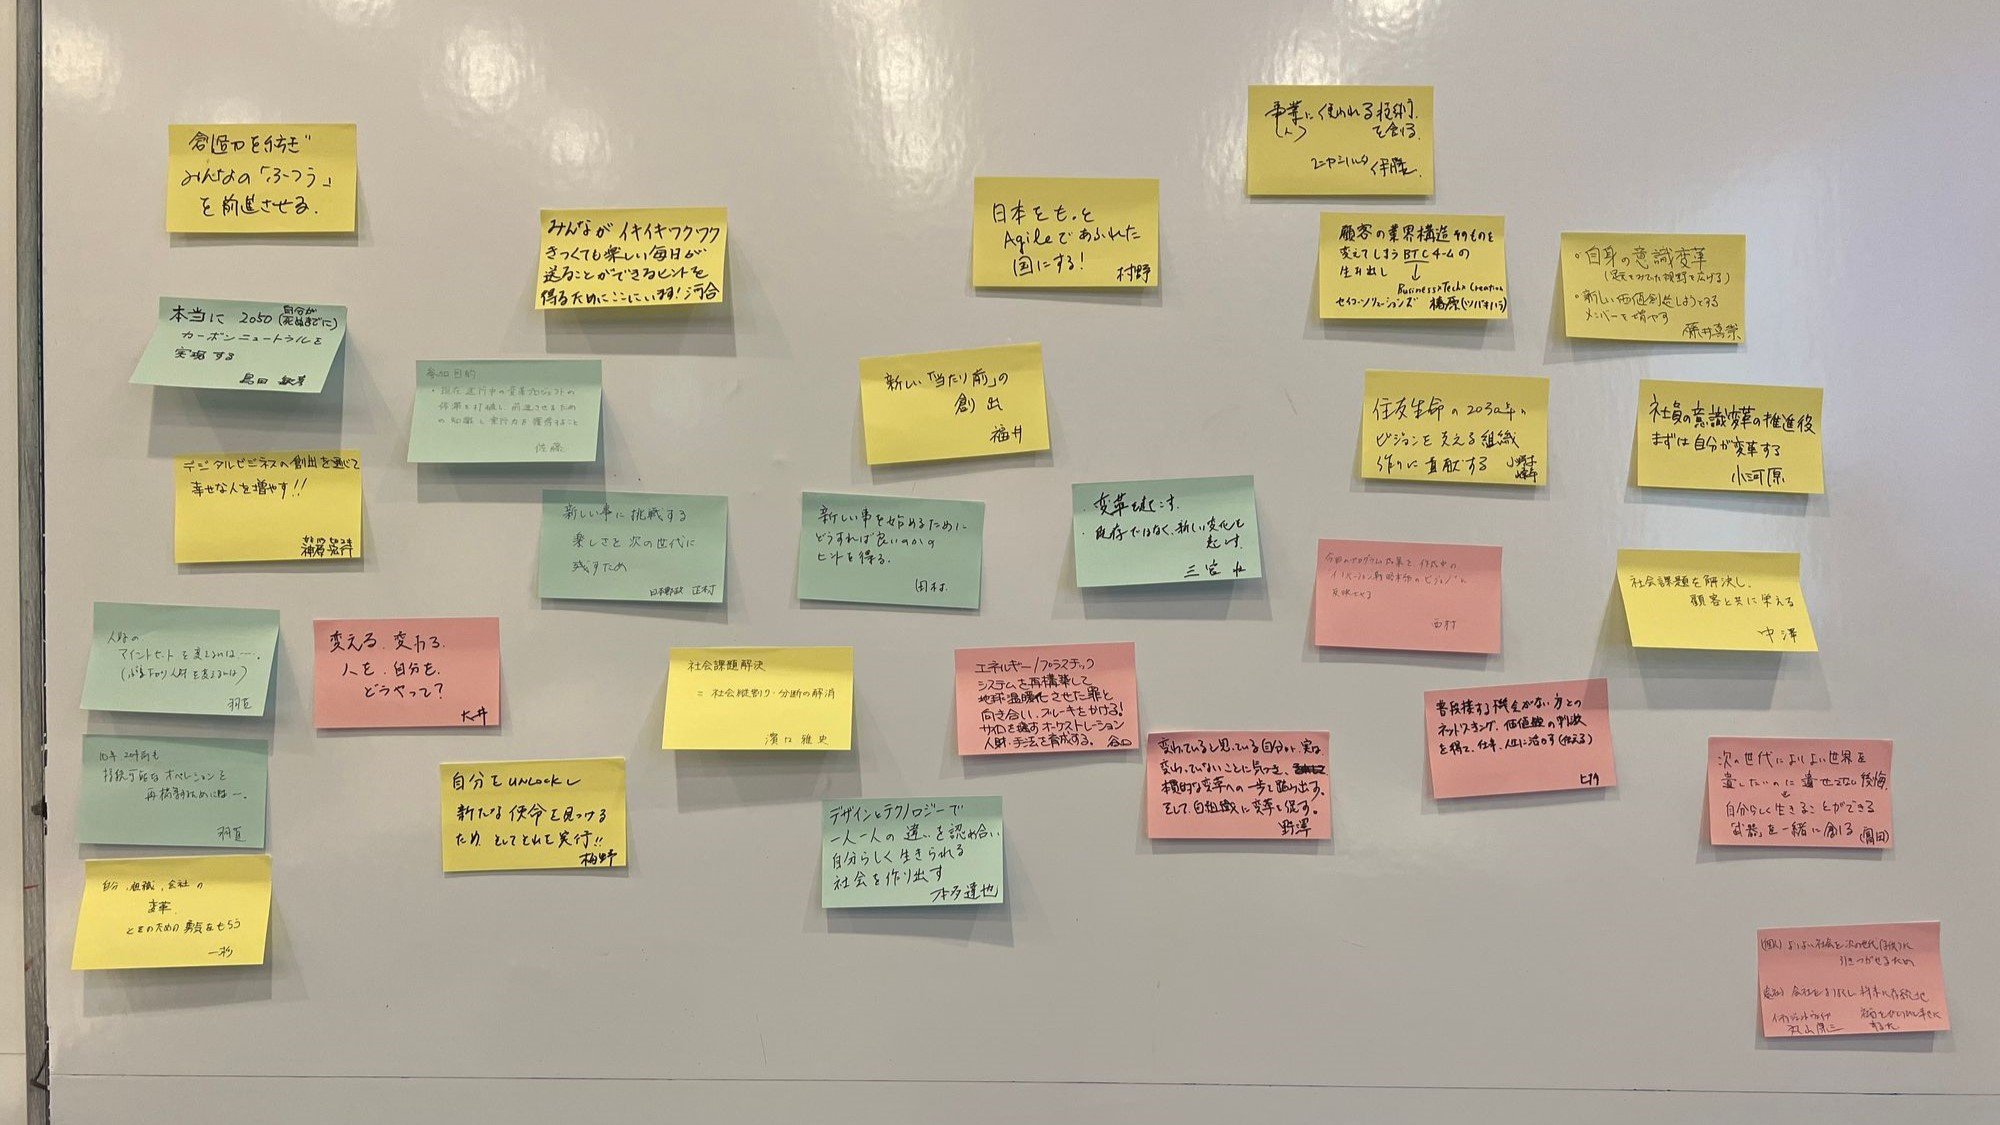 創造力を紡ぎ
みんなの「ふつう」
を前進させる.
みんながイキイキワクワク
きつくても楽しい毎日が
送ることができるヒントを
得るためにここにいます!河合
日本をもっと
Agileであふれた
国にする!
村野
事業に使われる技術
(人)
を創る.
伊勝
顧客の業界構造そのものを
変えてしまうBTCチームの
生み出し ↓
Business×Tech×Creation
セイコーソリューションズ 橋原(ツバキハラ)
・自身の意識変革
(足元をみてた視野を広げる)
・新しい価値創造しようとする
メンバーを増やす
藤井
本当に 2050(自分が死ぬまでに)
カーボンニュートラルを
実現する
島田
参加目的
・現在進行中の変革プロジェクトの
停滞を打破し、前進させるため
の知識と実行力を獲得すること
佐藤
新しい「当たり前」の
創出
福井
住友生命の2030年の
ビジョンを支える組織
作りに貢献する
小野寺
社員の意識変革の推進役
まずは自分が変革する
小河原
デジタルビジネスの創出を通じて
幸せな人を増やす!!
神原宏行
新しい事に挑戦する
楽しさを次の世代に
残すため
日本郵政 正村
新しい事を始めるために
どうすれば良いのかの
ヒントを得る.
田村.
・変革を起こす.
・既存ではなく、新しい変化を
起こす.
三宮
今回のプログラム成果を作成中の
イノベーション
ビジョンに
反映させる
西村
社会課題を解決し、
顧客と共に栄える
中澤
人財の
マインドセットを変えるには….
羽直
変える.変わる.
人を.自分を.
どうやって?
大井
社会課題解決
=社会縦割り・分断の解消
濱口 雅史
エネルギー/プラスチック
システムを再構築して
地球温暖化させた罪と
向き合い、ブレーキをかける!
サイロを壊すオーケストレーション
人財・手法を育成する。谷口
変わっていると思っている自分が、実は
変わっていないことに気づき、
横的な変革への一歩を踏み出す。
そして、自組織に変革を促す。
野澤
普段接する機会がない方との
ネットワーキング、価値観の刺激
を得て、仕事、人生に活かす(伝える)
次の世代によりよい世界を
遺したいのに遺せてない後悔.
自分らしく生きることができる
「武器」を一緒に創る
10年 20年前も
持続可能なオペレーションを
再構築するためには….
羽直
自分をUNLOCKし
新たな使命を見つける
ため そしてそれを実行!!
梅野
デザインとテクノロジーで
一人一人の違いを認め合い
自分らしく生きられる
社会を作り出す
本多達也
自分、組織、会社の
変革.
とそのための勇気をもらう
一杉
(個人) よりよい社会を次の世代(子供)に
引きつがせるため